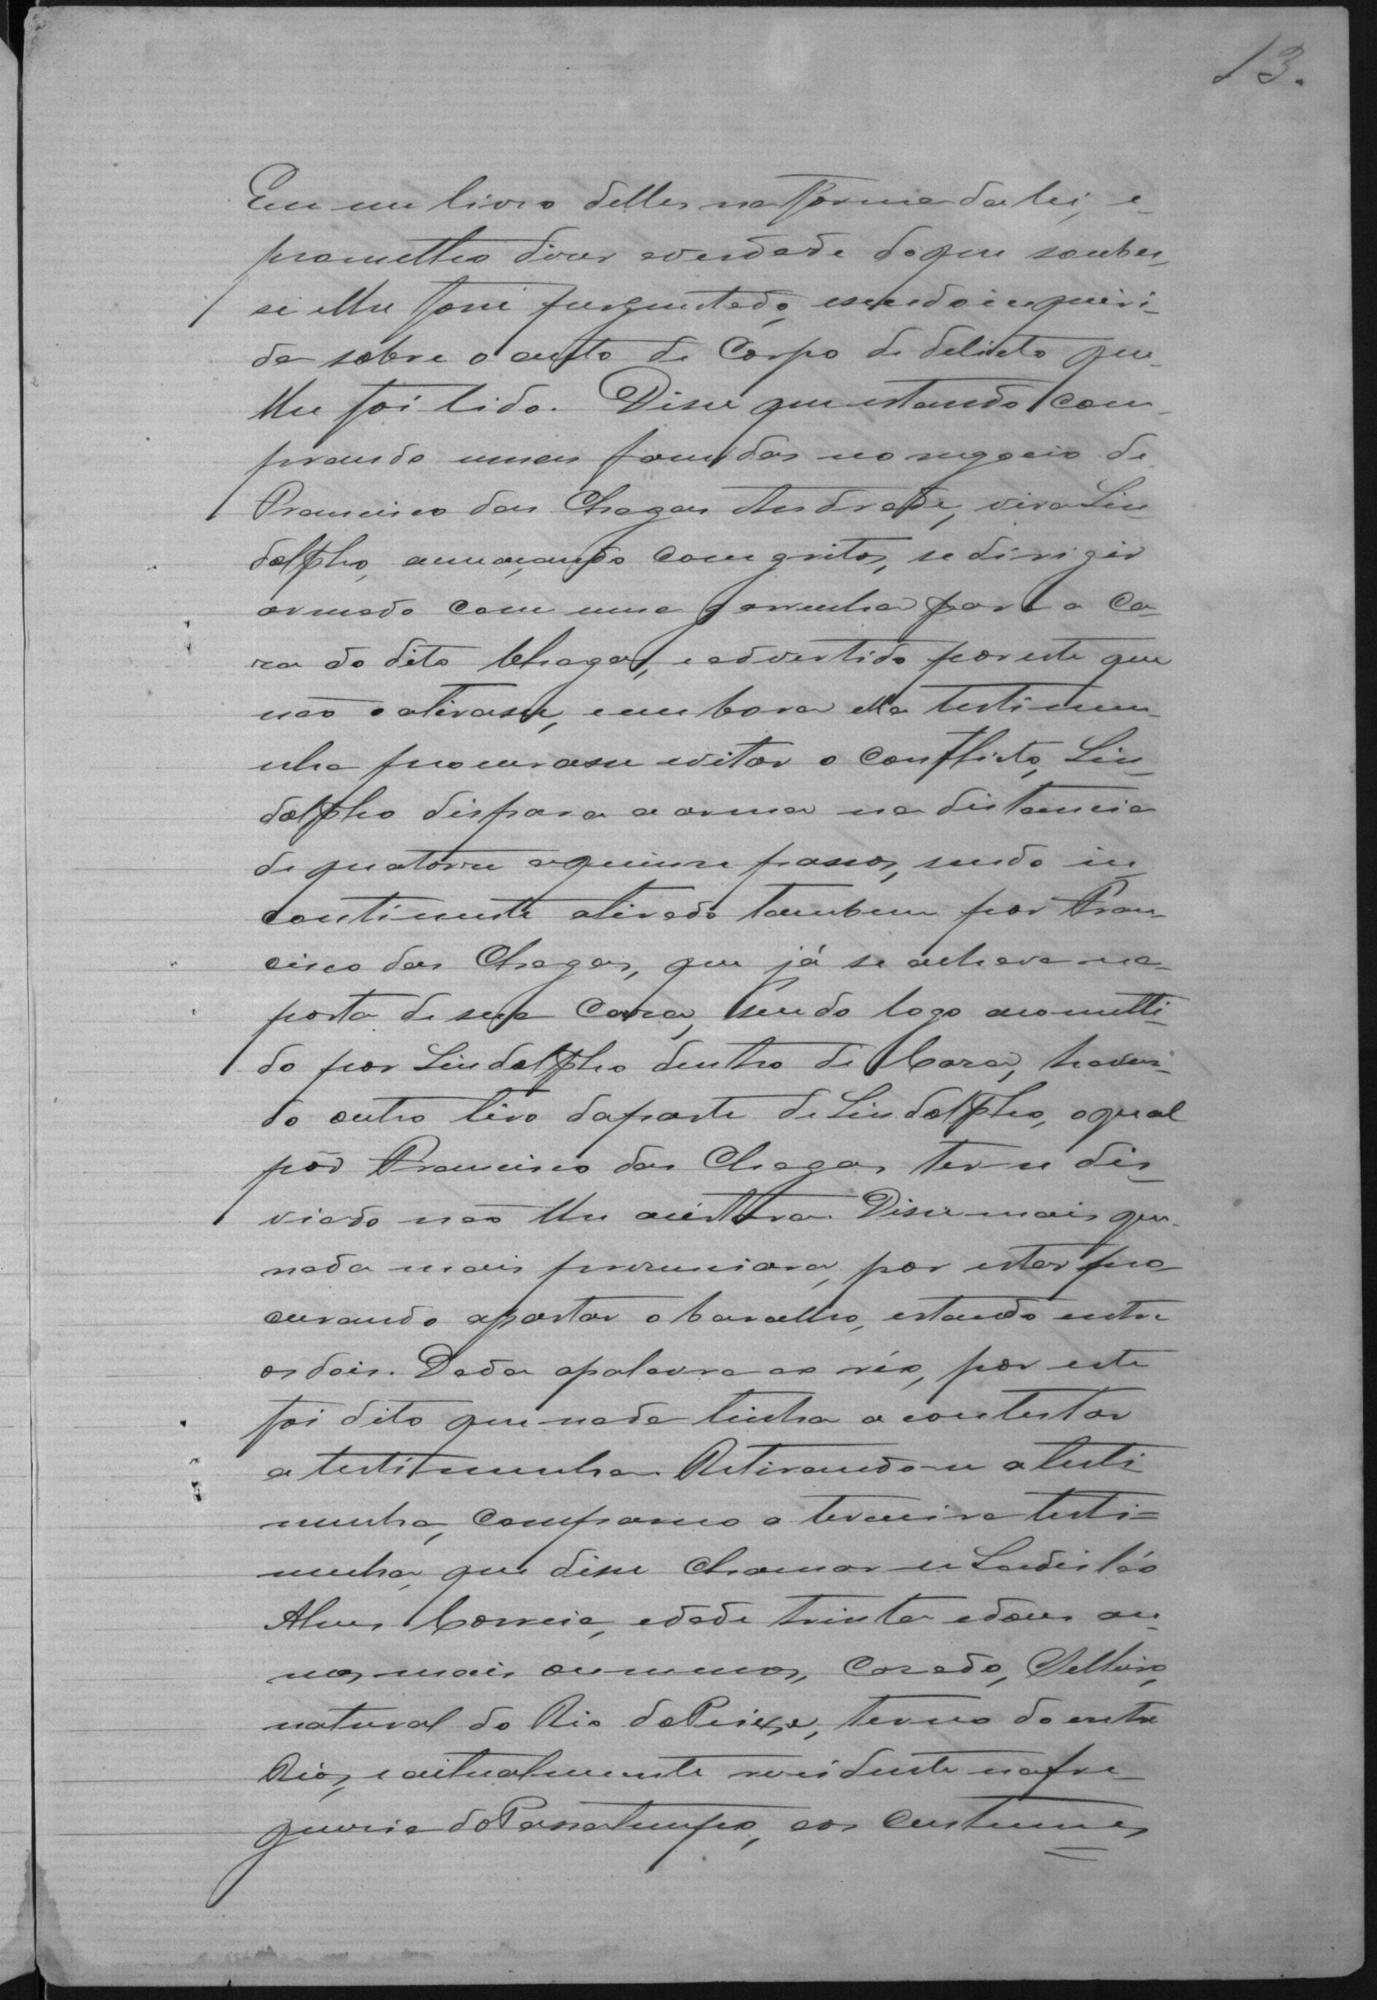 13.
Em um livro delles na forma da lei, e
prometteo diser averdade do que souber,
si lhe fosse perguntado, esendo inqueri-
da sobre o auto de Corpo de delicto que
lhe foi lido. Disse que estando com-
prando umas fasendas no negocio de
Francisco das Chagas Andrade, vira Lin-
dolpho, ameaçando com gritos, se dirigir
armado com uma garrucha para a Ca-
za do dito Chagas, e advertido por este que
não o atirasse, embora ella testimu-
nha procurasse evitar o conflicto, Lin-
dolpho dispara a arma na distancia
de quatorse a quinse passos, sendo in
continente atirado tambem por Fran-
cisco das Chagas, que já se achava na
porta de sua Casa, sendo logo acometti-
do por Lindolpho dentro de Casa, haven-
do outro tiro daparte de Lindolpho, oqual
por Francisco das Chagas ter-se des-
viado não lhe acertara. Disse mais que
nada mais presenciara, por estar pro
curando apartar o barulho, estando entre
os dois. Dada apalavra ao réo, por este
foi dito que nada tinha a contestar
a testimunha. Retirando-se a testi
munha, compareceo a terceira testi=
munha, que disse chamar-se Ladisláo
Alves Correia, edade trinta edous an-
nos mais oumenos, Casado, Selleiro,
natural do Rio do Peixe, termo do entre
Rios, e actualmente residente nafre
guesia do Passatempo, aos Custumes